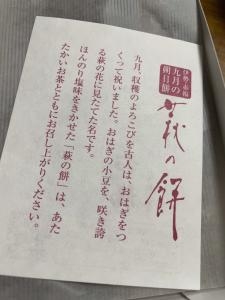 伊勢・赤福
九月の
朔日餅
萩の餅
九月、収穫のよろこびを古人は、おはぎをつ
くって祝いました。おはぎの小豆を、咲き誇
る萩の花に見たてた名です。
ほんのり塩味をきかせた「萩の餅」は、あた
たかいお茶とともにお召し上がりください。